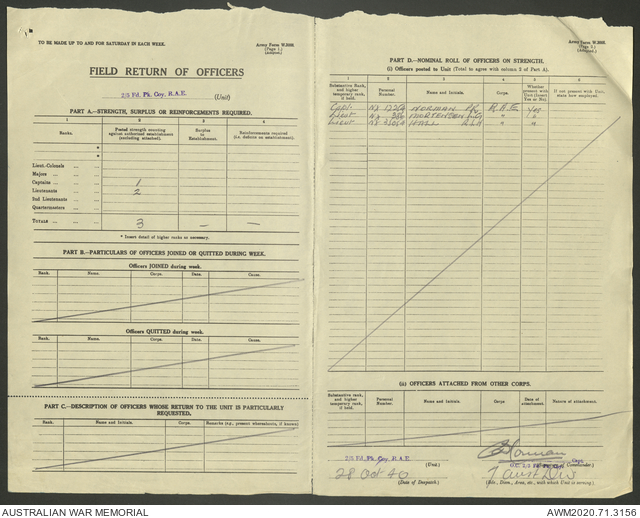 TO BE MADE UP TO AND FOR SATURDAY IN EACH WEEK.
Army Form W.3008.
(Page 1.)
(Adapted.)
FIELD RETURN OF OFFICERS
2/3 Fd. Pk. Coy. R.A.E. (Unit)
PART A.—STRENGTH, SURPLUS OR REINFORCEMENTS REQUIRED.
1 2 3 4
Ranks. Posted strength counting against authorised establishment (excluding attached). Surplus to Establishment. Reinforcements required (i.e. deficits on establishment).
*
*
Lieut.-Colonels
Majors
Captains 1
Lieutenants 2
2nd Lieutenants
Quartermasters
TOTALS 3 — —
* Insert detail of higher ranks as necessary.
PART B.—PARTICULARS OF OFFICERS JOINED OR QUITTED DURING WEEK.
Officers JOINED during week.
Rank. Name. Corps. Date. Cause.
Officers QUITTED during week.
Rank. Name. Corps. Date. Cause.
PART C.—DESCRIPTION OF OFFICERS WHOSE RETURN TO THE UNIT IS PARTICULARLY REQUESTED,
Rank. Name and Initials. Corps. Remarks (e.g., present whereabouts, if known)
Army Form W.3008.
(Page 2.)
(Adapted.)
PART D.—NOMINAL ROLL OF OFFICERS ON STRENGTH.
(i) Officers posted to Unit (Total to agree with column 2 of Part A).
1 2 3 4 5 6
Substantive Rank, and higher temporary rank, if held. Personal Number. Name and Initials. Corps. Whether present with Unit (Insert Yes or No) If not present with Unit, state how employed.
Capt. NORMAN R.A.E. Yes
Lieut MORTENSEN " "
Lieut HALL " "
(ii) OFFICERS ATTACHED FROM OTHER CORPS.
Substantive Rank, and higher temporary rank, if held. Personal Number. Name and Initials. Corps Date of attachment. Nature of attachment.
2/3 Fd. Pk. Coy. R.A.E. (Unit.)
Norman Capt.
Commander.)
28 Oct 40
(Date of Despatch.)
7 Aust Div
(Bde., Divn., Area, etc., with which Unit is serving.)
AUSTRALIAN WAR MEMORIAL
AWM2020.71.3156